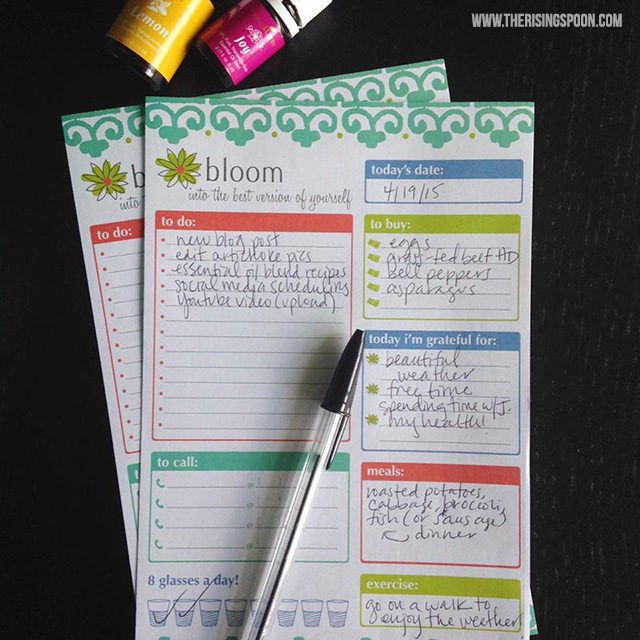 WWW.THERISINGSPOON.COM
Lemon
Joy
bloom
into the best version of yourself
today's date:
4/19/15
to do:
new blog post
edit artichoke pics
essential oil blend recipes
social media scheduling
youtube video (upload)
to buy:
eggs
grass-fed beef HD
bell peppers
asparagus
today i'm grateful for:
beautiful
weather
free time
spending time w/ J.
my health!
to call:
meals:
roasted potatoes,
cabbage, broccoli,
fish (or sausage)
dinner
8 glasses a day!
exercise:
go on a walk to
enjoy the weather
b
into
to do: